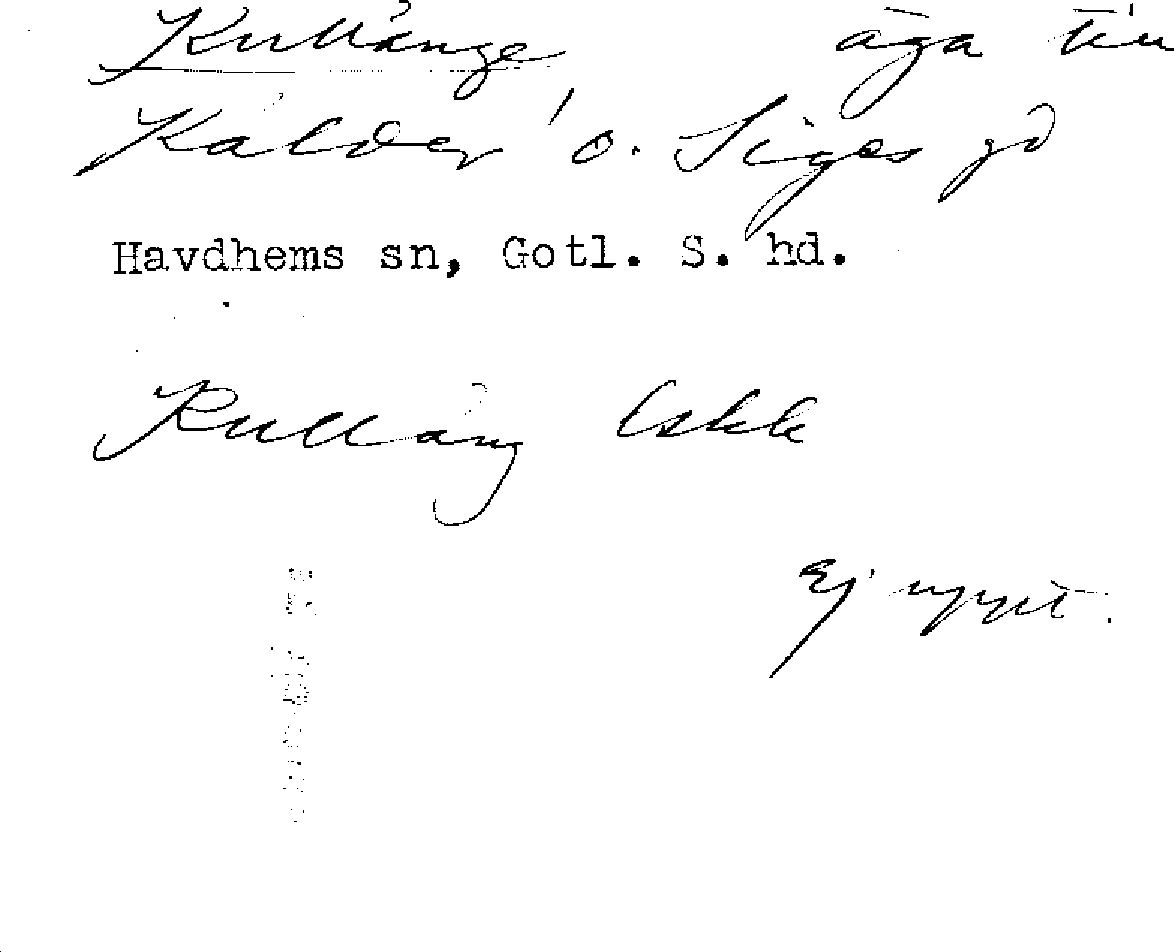 Kullänge äga till
Kälder o. Siges gd
Havdhems sn, Gotl. S. hd.
Kulläng
Ej uppt.